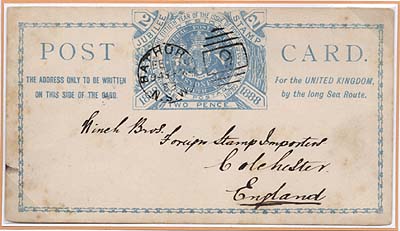 JUBILEE STAMP
POST CARD.
THE ADDRESS ONLY TO BE WRITTEN
ON THIS SIDE OF THE CARD.
For the UNITED KINGDOM,
by the long Sea Route.
1888
TWO PENCE
BATHURST
Winch Bros.
Foreign Stamp Importers
Colchester
England